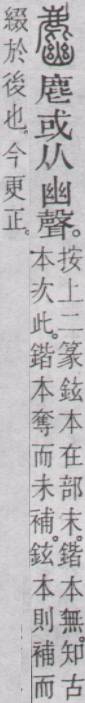 麀或从幽聲。
按上二篆鉉本在部末。鍇本無。知古
本次此。鍇本奪而未補。鉉本則補而
綴於後也。今更正。